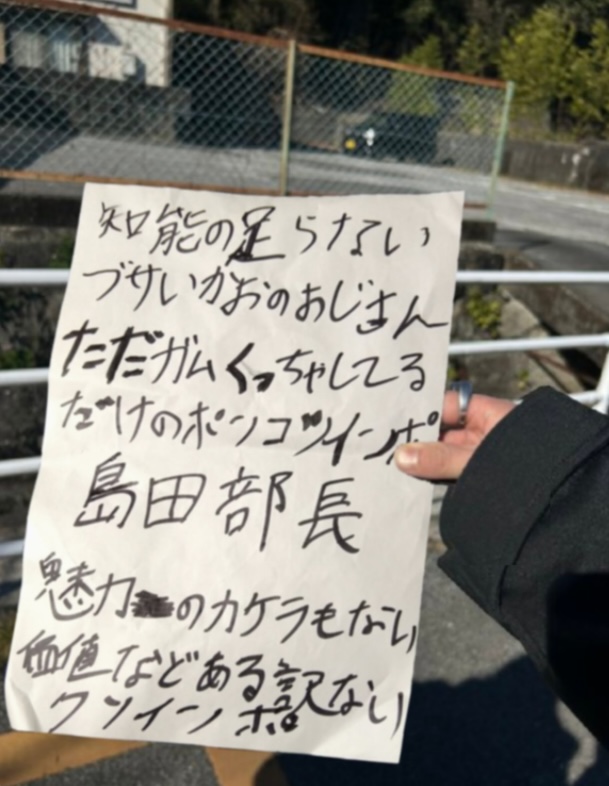 知能の足らない
ブサいがおのおじさん
ただガムくっちゃしてる
だけのポンコツインポ
島田部長
魅力のカケラもない
価値などある訳ない
クソインポ